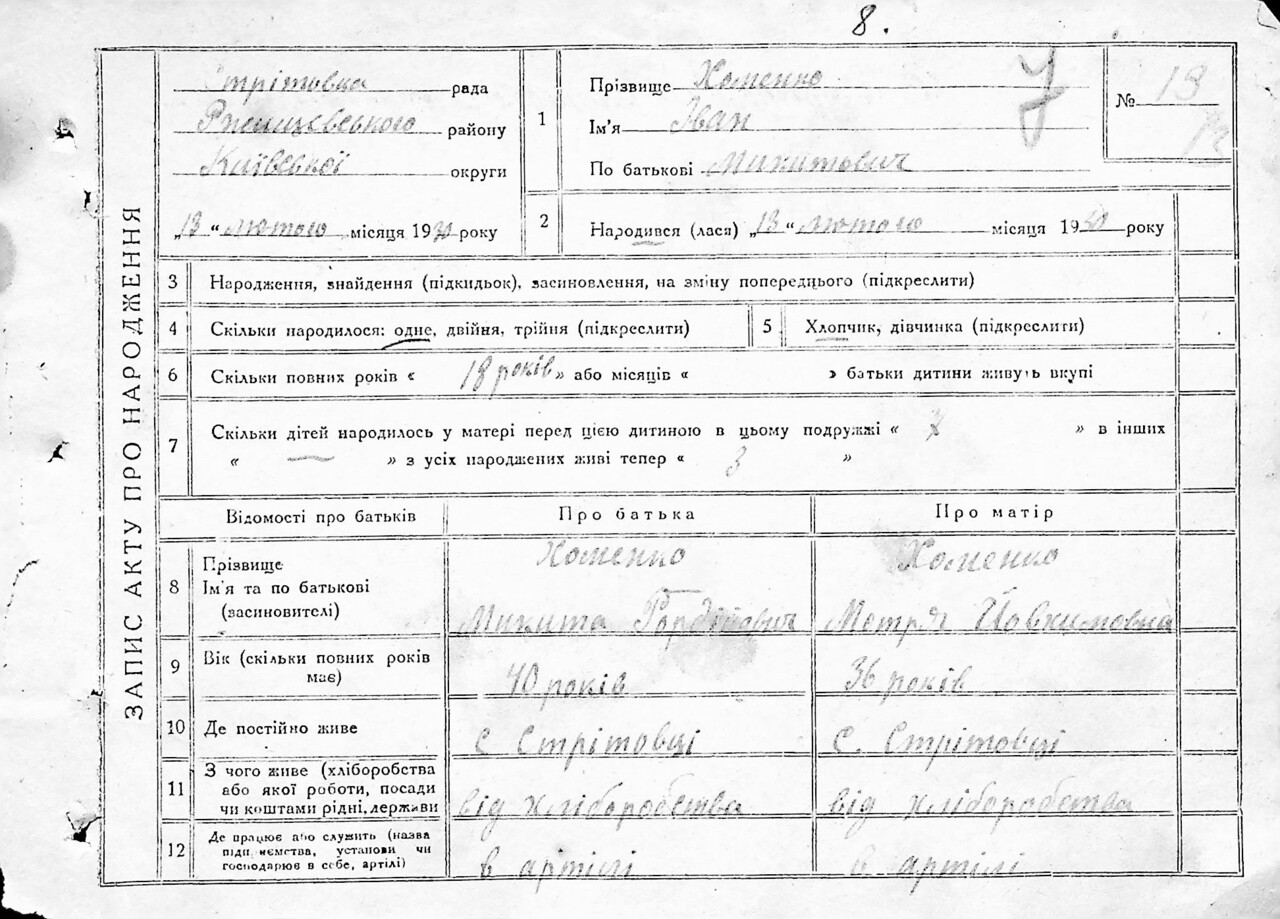 8.
ЗАПИС АКТУ ПРО НАРОДЖЕННЯ
Стрітовка рада
Ржищевського району
Київської округи
„13“ лютого місяця 1930 року
1
Прізвище Хоменко
Ім'я Іван
По батькові Микитович
№ 13
2
Народився (лася) „13“ лютого місяця 1930 року
3 Народження, знайдення (підкидьок), засиновлення, на зміну попереднього (підкреслити)
4 Скільки народилося: одне, двійня, трійня (підкреслити)
5 Хлопчик, дівчинка (підкреслити)
6 Скільки повних років « 18 років » або місяців « » батьки дитини живуть вкупі
7 Скільки дітей народилось у матері перед цією дитиною в цьому подружжі « » в інших
« — » з усіх народжених живі тепер « 3 »
Відомості про батьків Про батька Про матір
8 Прізвище
Ім'я та по батькові
(засиновителі)
Хоменко
Микита
Хоменко
Мотря Йовхимовна
9 Вік (скільки повних років
має)
40 років 36 років
10 Де постійно живе с Стрітовці с. Стрітовці
11 З чого живе (хліборобства
або якої роботи, посади
чи коштами рідні, держави
від хліборобства від хліборобства
12 Де працює або служить (назва
підприємства, установи чи
господарює в себе, артілі)
в артілі в артілі